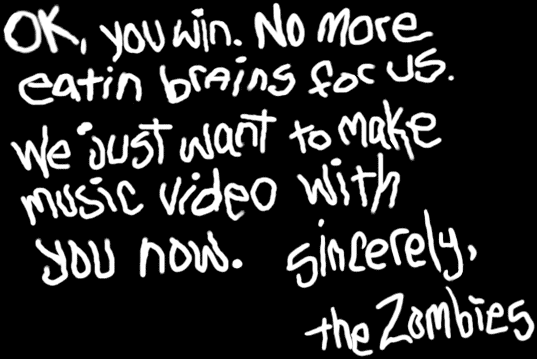 OK, you win. No More
eatin brains foc us.
We just want to make
music video with
you now. sincerely,
the Zombies